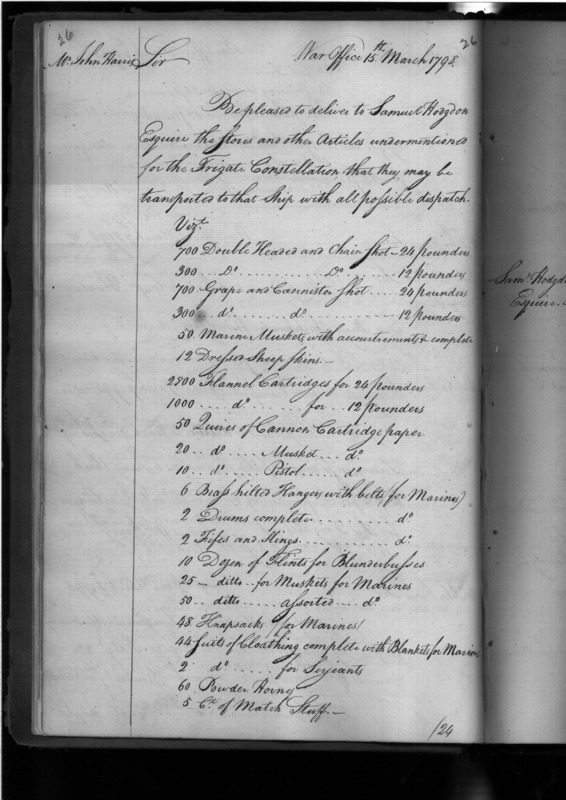 26
26
Mr. John Harris
Sir
War Office 15th March 1798.
Be pleased to deliver to Samuel Hodgdon
Esquire the Stores and other Articles undermentioned
for the Frigate Constellation that they may be
transported to that Ship with all possible dispatch.
Vizt.
700 Double Headed and Chain Shot - 24 pounders
300 ... Do. ............ Do. ........ 12 pounders
700 Grape and Cannister Shot .... 24 pounders
300 .. do. ........ do. ............ 12 pounders
50 Marine Muskets with accoutrements complete
12 Dressed Sheep Skins. -
2800 Flannel Cartridges for 24 pounders
1000 ..... do. ........ for .. 12 pounders
50 Quires of Cannon Cartridge paper
20 .. do. .... Musket ... do.
10 .. do. .... Pistol ..... do.
6 Brass hilted Hangers with belts (for Marines)
2 Drums complete ............ do.
2 Fifes and Slings ............ do.
10 Dozen of Flints for Blunderbusses
25 - ditto .. for Muskets for Marines
50 .. ditto ..... assorted .... do.
48 Knapsacks (for Marines)
44 Suits of Cloathing complete with Blankets for Marines
2 do. ..... for Serjeants
60 Powder Horns
5 Ct. of Match Stuff. -
/24
Saml. Hodgd
Esquire